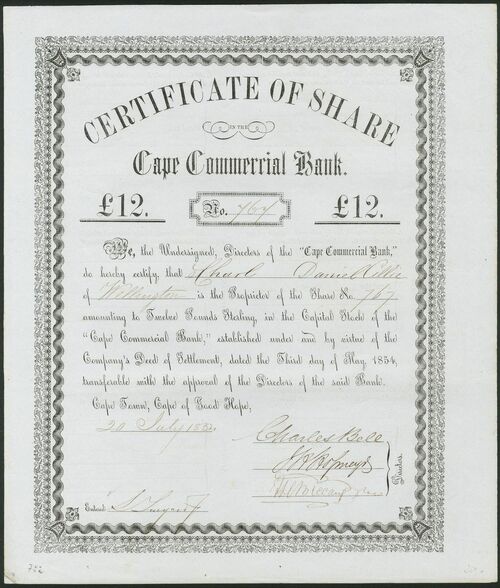 CERTIFICATE OF SHARE
IN THE
Cape Commercial Bank.
£12. No. 767 £12.
We, the Undersigned, Directors of the "Cape Commercial Bank,"
do hereby certify, that Charl Daniel Cillie
of Wellington is the Proprietor of the Share No 767
amounting to Twelve Pounds Sterling, in the Capital Stock of the
"Cape Commercial Bank," established under and by virtue of the
Company's Deed of Settlement, dated the Third day of May, 1854,
transferable with the approval of the Directors of the said Bank.
Cape Town, Cape of Good Hope,
20 July
Charles Bell
Directors.
Entered